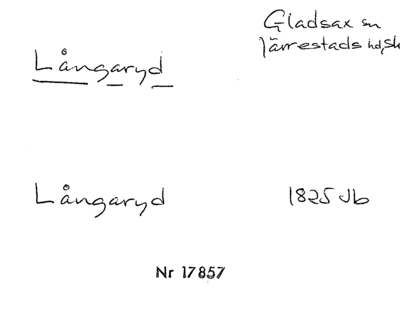 Gladsax sn
Långaryd
Järrestads hd, Sk
Långaryd 1825 Jb
Nr 17857